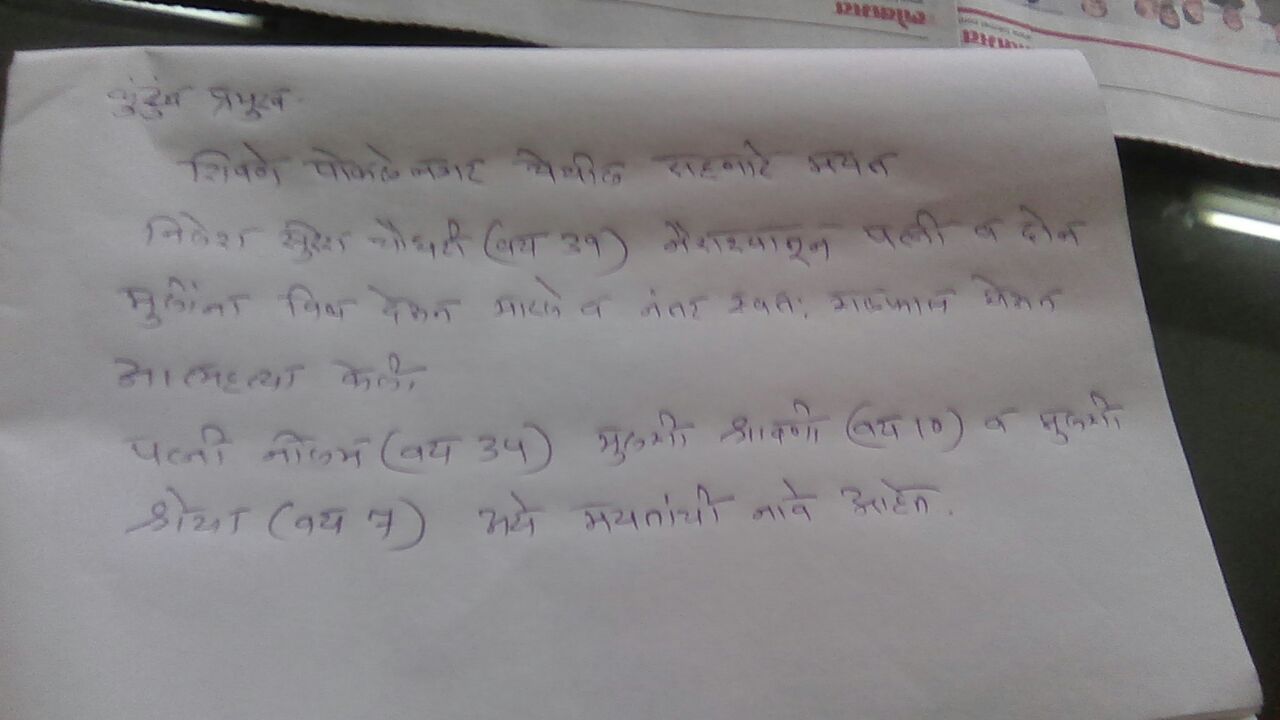 लोकमत
कुंटुंब प्रमुख
शिवणे पोकळेनगर येथील राहणारे मयत
निलेश सुरेश चौधरी (वय ३९) नैराश्यातून पत्नी व दोन
मुलींना विष देऊन मारले व नंतर स्वतः गळफास घेऊन
आत्महत्या केली
पत्नी नीलम (वय ३५) मुलगी श्रावणी (वय १०) व मुलगी
श्रेया (वय ७) असे मयतांची नावे आहेत.